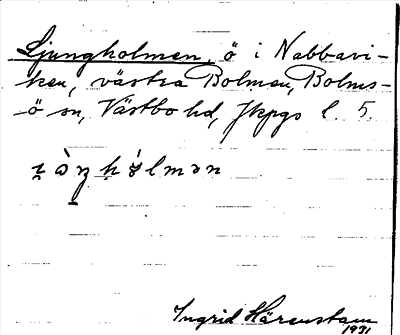 Ljungholmen, ö i Nabbavi-
ken, västra Bolmen, Bolms-
ö sn, Västbo hd, Jkpgs l. 5.
Ingrid Härenstam
1931